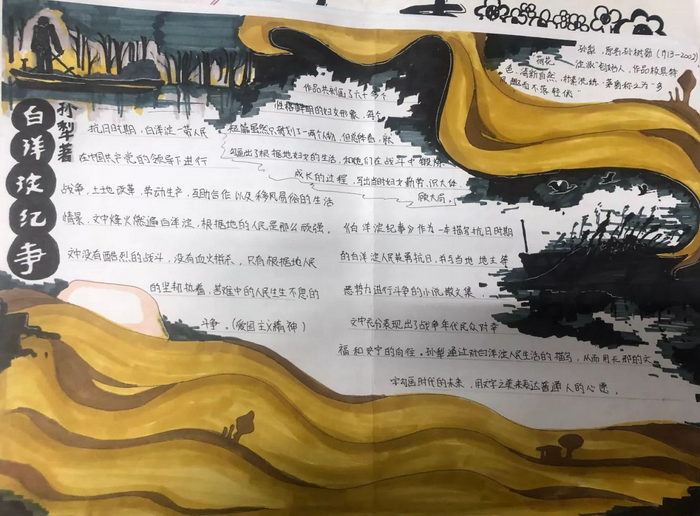 白洋淀纪事
孙犁著
抗日时期，白洋淀一带人民
在中国共产党的领导下进行
战争，土地改革，劳动生产，互助合作以及移风易俗的生活
情景，文中烽火燃遍白洋淀，根据地的人民是那么顽强，
文中没有酷烈的战斗，没有血火拼杀，只有根据地人民
的坚韧执着，苦难中的人民生生不息的
斗争。（爱国主义精神）
作品共刻画了六十多个
性格鲜明的妇女形象，每个
短篇虽然只
勾画出了根据地妇女的生活，和她们在战斗中
成长的过程，写出当时妇女勤劳，识大体
顾大局。
孙犁，原名孙树勋（1913-2002）
"荷花
淀派"创始人，作品极具特
色，清新自然，朴素洗练，茅盾称之为"多
风趣而不落轻佻"
《白洋淀纪事》作为一本描写抗日时期
的白洋淀人民英勇抗日，并与当地地主等
恶势力进行斗争的小说散文集，
文中充分表现出了战争年代民众对幸
福和安宁的向往。孙犁通过对白洋淀人民生活的描写，从而用无邪的文
字勾画时代的未来，用文字之美来表达普通人的心愿。